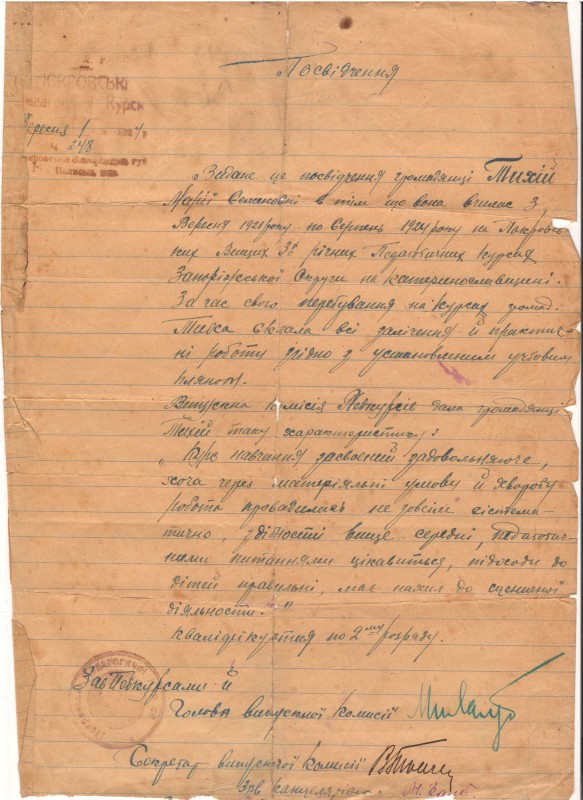 Посвідчення
Покровські
Курси
Вересня 1 1924 р
Ч 248
Видане це посвідчення громадянці Тихій
Марії Семеновні в тім що вона вчилас з
Вересня 1921 року по Серпень 1924 року на Покровсь-
ких Вищих 3х річних Педагогічних Курсах
Запоріжської Округи на Катеринославщині.
За час свого перебування на курсах громад.
Тиха склала всі залічення й практич-
ні роботи згідно з установленим учбовим
пляном.
Випускна комісія Педкурсів дала громадянці
Тихій таку характеристику:
"Курс навчання засвоєний задовольняюче,
хоча через матеріяльні умови й хворобу
робота провадилась не зовсім сістема-
тично, здібності вище середні, педагогіч-
ними питаннями цікавиться, підходи до
дітей правильні, має нахил до сценичної
діяльности."
Кваліфікується по 2му розряду.
Зав Педкурсами й
Голова випускної комісії
Секретар випускної комісії
Зав канцелярією